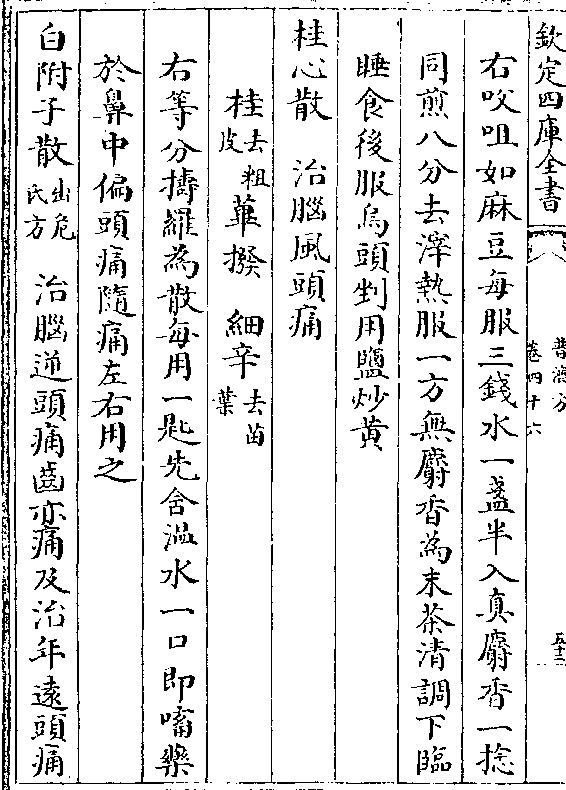 欽定四庫全書
普濟方
卷四十六
五十二
右㕮咀如麻豆每服三錢水一盞半入真麝香一捻
同煎八分去滓熱服一方無麝香為末茶清調下臨
睡食後服烏頭剉用鹽炒黄
桂心散　治腦風頭痛
桂去粗皮　蓽撥　細辛去苗葉
右等分擣羅為散每用一匙先含温水一口即㗜藥
於鼻中偏頭痛隨痛左右用之
白附子散出危氏方　治腦逆頭痛齒亦痛及治年遠頭痛